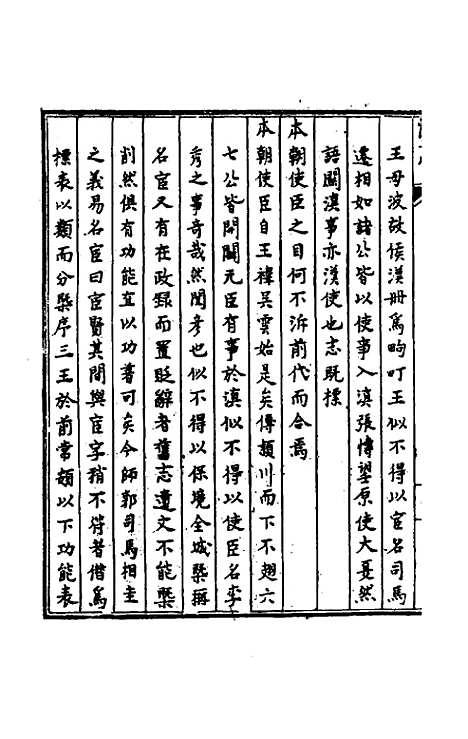 王毋波故侯漢冊爲畇町王似不得以宦名司馬
遷相如諸公皆以使事入滇張愽望原使大夏然
語關滇事亦漢使也志旣標
本朝使臣之目何不泝前代而合焉
本朝使臣自王褘吳雲始是矣傳潁川而下不翅六
七公皆開闢元臣有事於滇似不得以使臣名李
秀之事奇哉然閨孝也似不得以保境全城槩稱
名宦又有在政錄而置貶辭者舊志遺文不能槩
削然俱有功能宜以功著可矣今師郭司馬相圭
之義易名宦曰宦賢其間與宦字稍不符者借爲
標表以類而分槩序三王於前常頞以下功能表